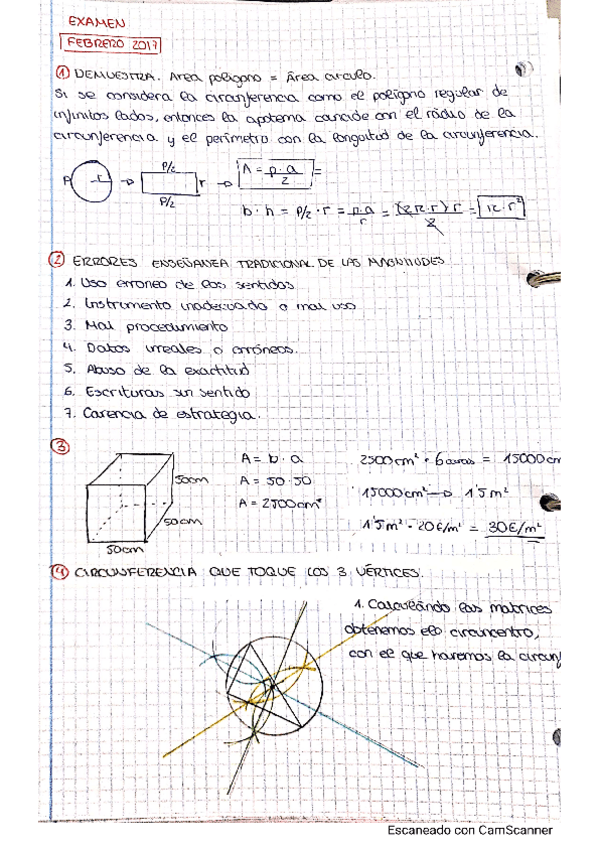 EXAMEN
FEBRERO 2017
① DEMUESTRA. Area poligono = Área circulo.
Si se considera la circunferencia como el poligono regular de
infinitos lados, entonces la apotema coincide con el radio de la
circunferencia y el perímetro con la longitud de la circunferencia.
P r → P/2 r P/2 → A = p·a/2 =
b·h = P/2 · r = p·a/r = (2π·r)·r/2 = π·r²
② ERRORES ENSEÑANZA TRADICIONAL DE LAS MAGNITUDES
1. Uso erroneo de los sentidos
2. Instrumento inadecuado o mal uso
3. Mal procedimiento
4. Datos irreales o erróneos.
5. Abuso de la exactitud
6. Escrituras sin sentido
7. Carencia de estrategia.
③
A = b · a 2500cm² · 6 caras = 15000cm
50cm A = 50·50
A = 2500cm² 15000cm² → 1'5m²
50cm
1'5m² · 20€/m² = 30€/m²
50cm
④ CIRCUNFERENCIA QUE TOQUE LOS 3 VÉRTICES.
1. Calculando las matrices
obtenemos el circuncentro,
con el que haremos la circunf
Escaneado con CamScanner